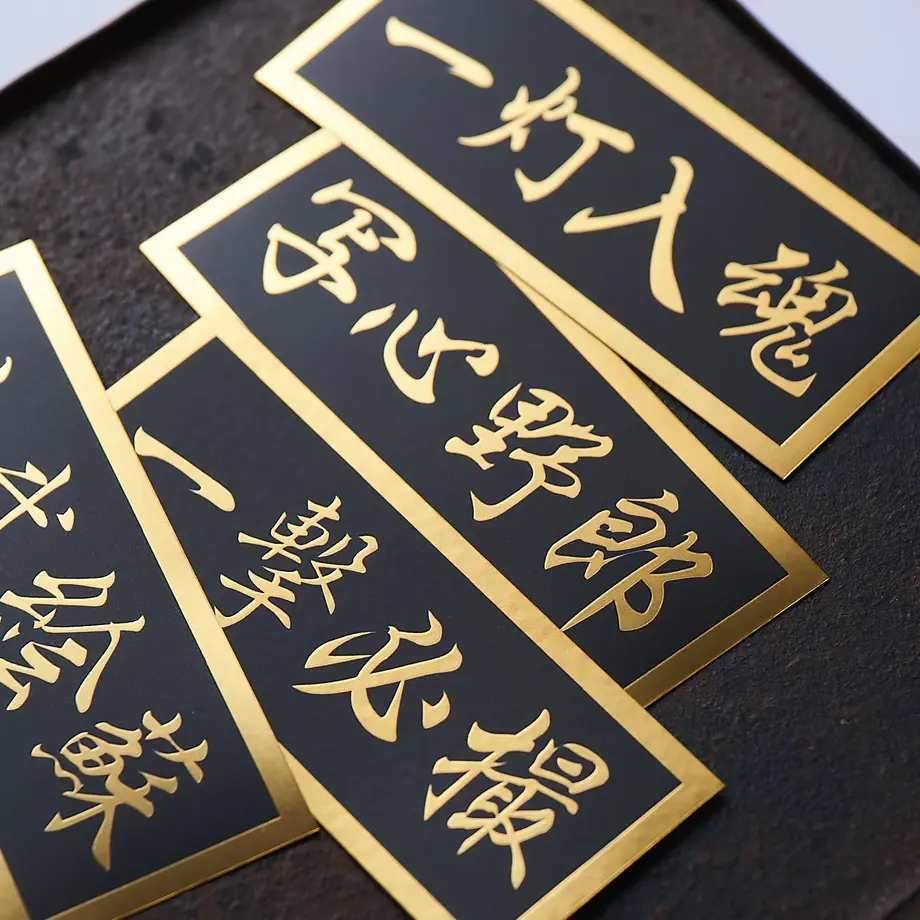 一灯入魂
写心野郎
一撃必撮
蘇